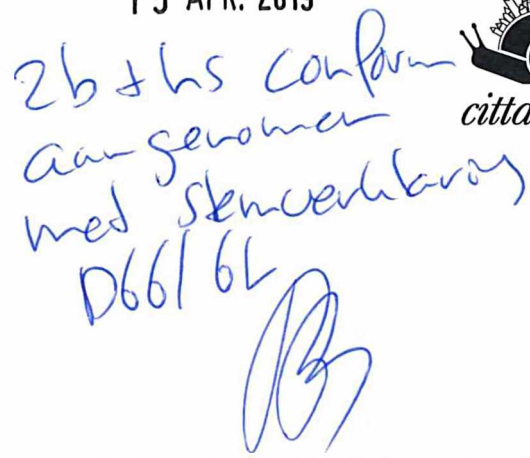 APR. 2015
citta
2b + hs conform
aangenomen
met stemverklaring
D66/GL